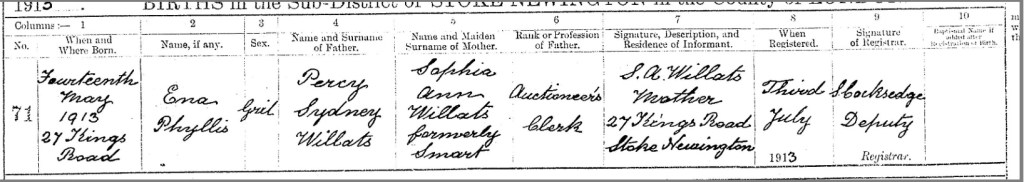 1913 BIRTHS in the Sub-District of STOKE NEWINGTON in the County of
Columns:— 1 2 3 4 5 6 7 8 9 10
No. When and Where Born. Name, if any. Sex. Name and Surname of Father. Name and Maiden Surname of Mother. Rank or Profession of Father. Signature, Description, and Residence of Informant. When Registered. Signature of Registrar. Baptismal Name if added after Registration of Birth.
71
Fourteenth
May
1913
27 Kings
Road
Ena
Phyllis
Gril
Percy
Sydney
Willats
Sophia
Ann
Willats
formerly
Smart
Auctioneer's
Clerk
S. A. Willats
Mother
27 Kings Road
Stoke Newington
Third
July
1913
Deputy
Registrar.